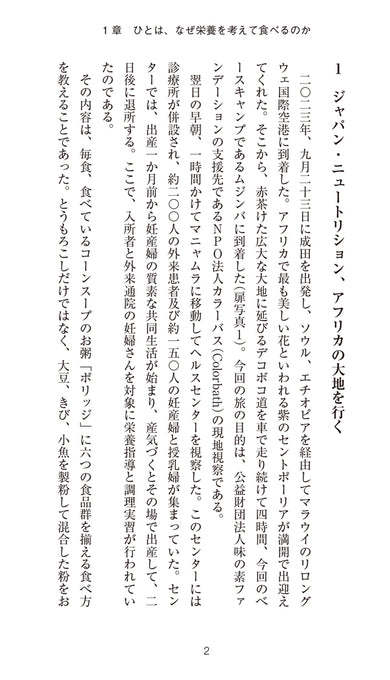 1章　ひとは、なぜ栄養を考えて食べるのか
1　ジャパン・ニュートリション、アフリカの大地を行く
二〇二三年、九月二十三日に成田を出発し、ソウル、エチオピアを経由してマラウイのリロング
ウェ国際空港に到着した。アフリカで最も美しい花といわれる紫のセントポーリアが満開で出迎え
てくれた。そこから、赤茶けた広大な大地に延びるデコボコ道を車で走り続けて四時間、今回のベ
ースキャンプであるムジンバに到着した（扉写真1）。今回の旅の目的は、公益財団法人味の素ファ
ンデーションの支援先であるNPO法人カラーバス（Colorbath）の現地視察である。
翌日の早朝、一時間かけてマニャムラに移動してヘルスセンターを視察した。このセンターには
診療所が併設され、約二〇〇人の外来患者及び約一五〇人の妊産婦と授乳婦が集まっていた。セン
ターでは、出産一か月前から妊産婦の質素な共同生活が始まり、産気づくとその場で出産して、二
日後に退所する。ここで、入所者と外来通院の妊婦さんを対象に栄養指導と調理実習が行われてい
たのである。
その内容は、毎食、食べているコーンスープのお粥「ポリッジ」に六つの食品群を揃える食べ方
を教えることであった。とうもろこしだけではなく、大豆、きび、小魚を製粉して混合した粉をお
2